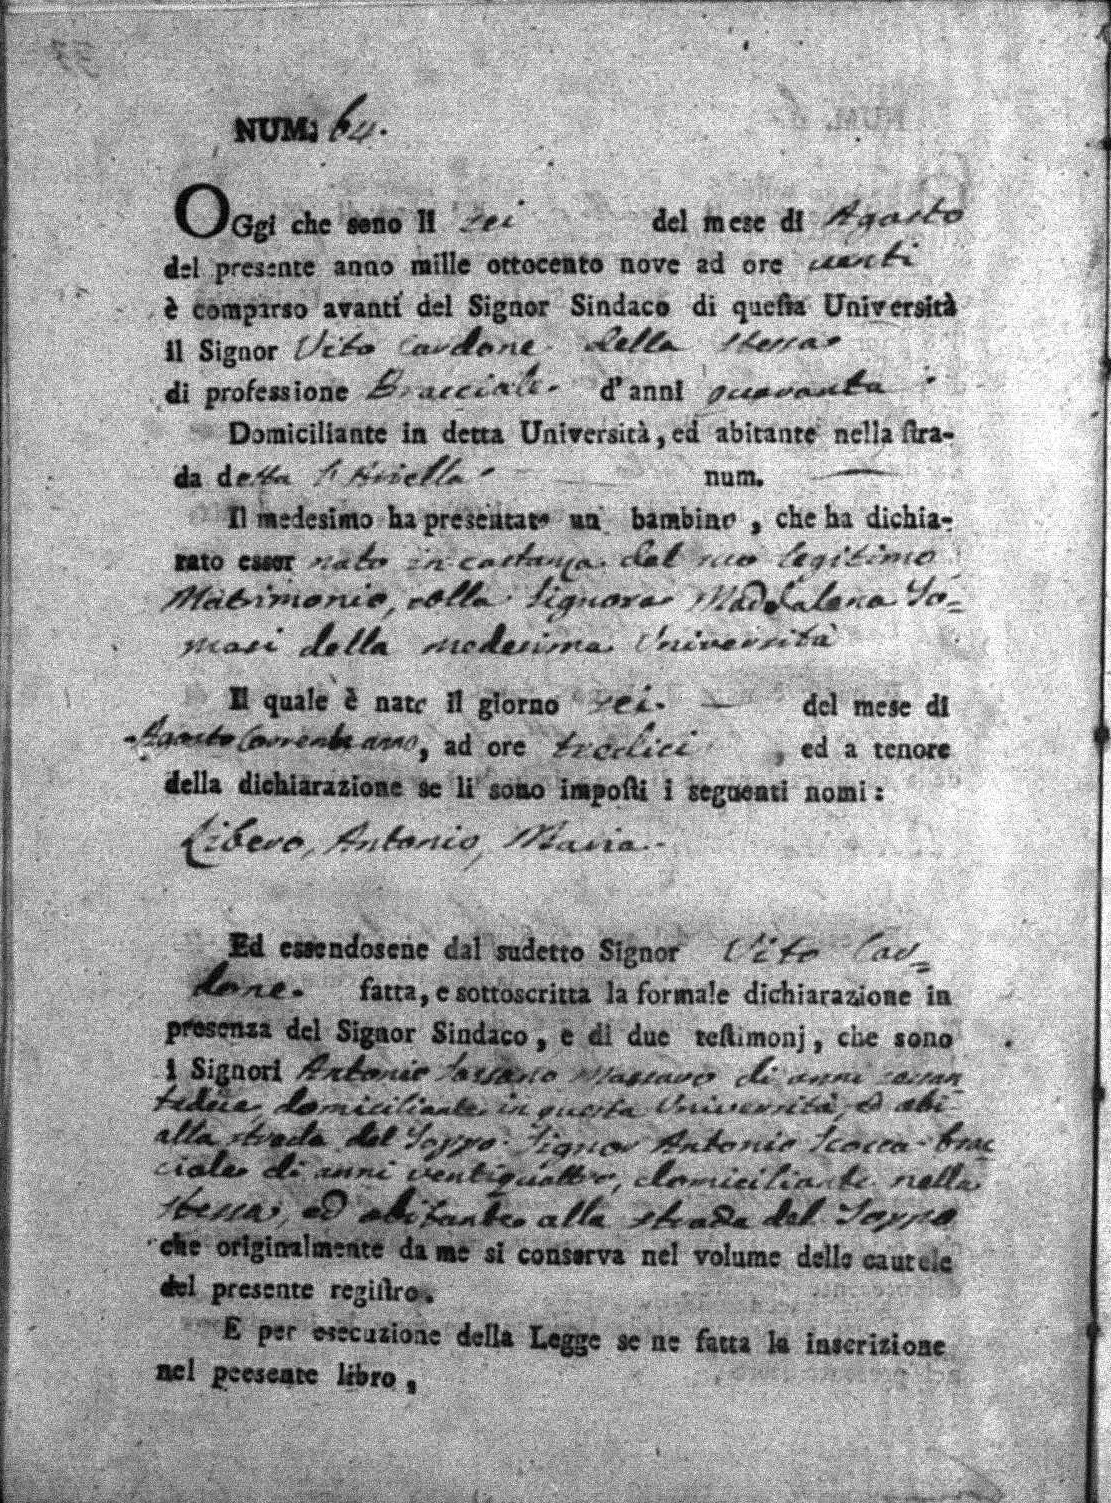 NUM: 64.
OGgi che sono li sei del mese di Agosto
del presente anno mille ottocento nove ad ore venti
è comparso avanti del Signor Sindaco di questa Università
il Signor Vito Cardone della stessa
di professione Bracciale. d'anni quaranta
Domiciliante in detta Università, ed abitante nella stra-
da detta num.
Il medesimo ha presentato un bambino, che ha dichia-
rato esser nato in costanza del suo legitimo
Matrimonio, colla Signora Maddalena To=
masi della medesima Università
Il quale è nato il giorno sei. del mese di
Agosto Corrente anno, ad ore tredici, ed a tenore
della dichiarazione se li sono imposti i seguenti nomi:
Libero, Antonio, Maria.
Ed essendosene dal sudetto Signor Vito Car=
done. fatta, e sottoscritta la formale dichiarazione in
presenza del Signor Sindaco, e di due testimonj, che sono
i Signori Antonio Massaro di anni sessan
domiciliante in questa Università, ed abi
alla strada del Toppo. Signor Antonio Scocca brac
ciale di anni ventiquattro, domiciliante nella
stessa, ed abitante alla strada del Toppo
che originalmente da me si conserva nel volume delle cautele
del presente registro.
E per esecuzione della Legge se ne fatta la inscrizione
nel peesente libro,